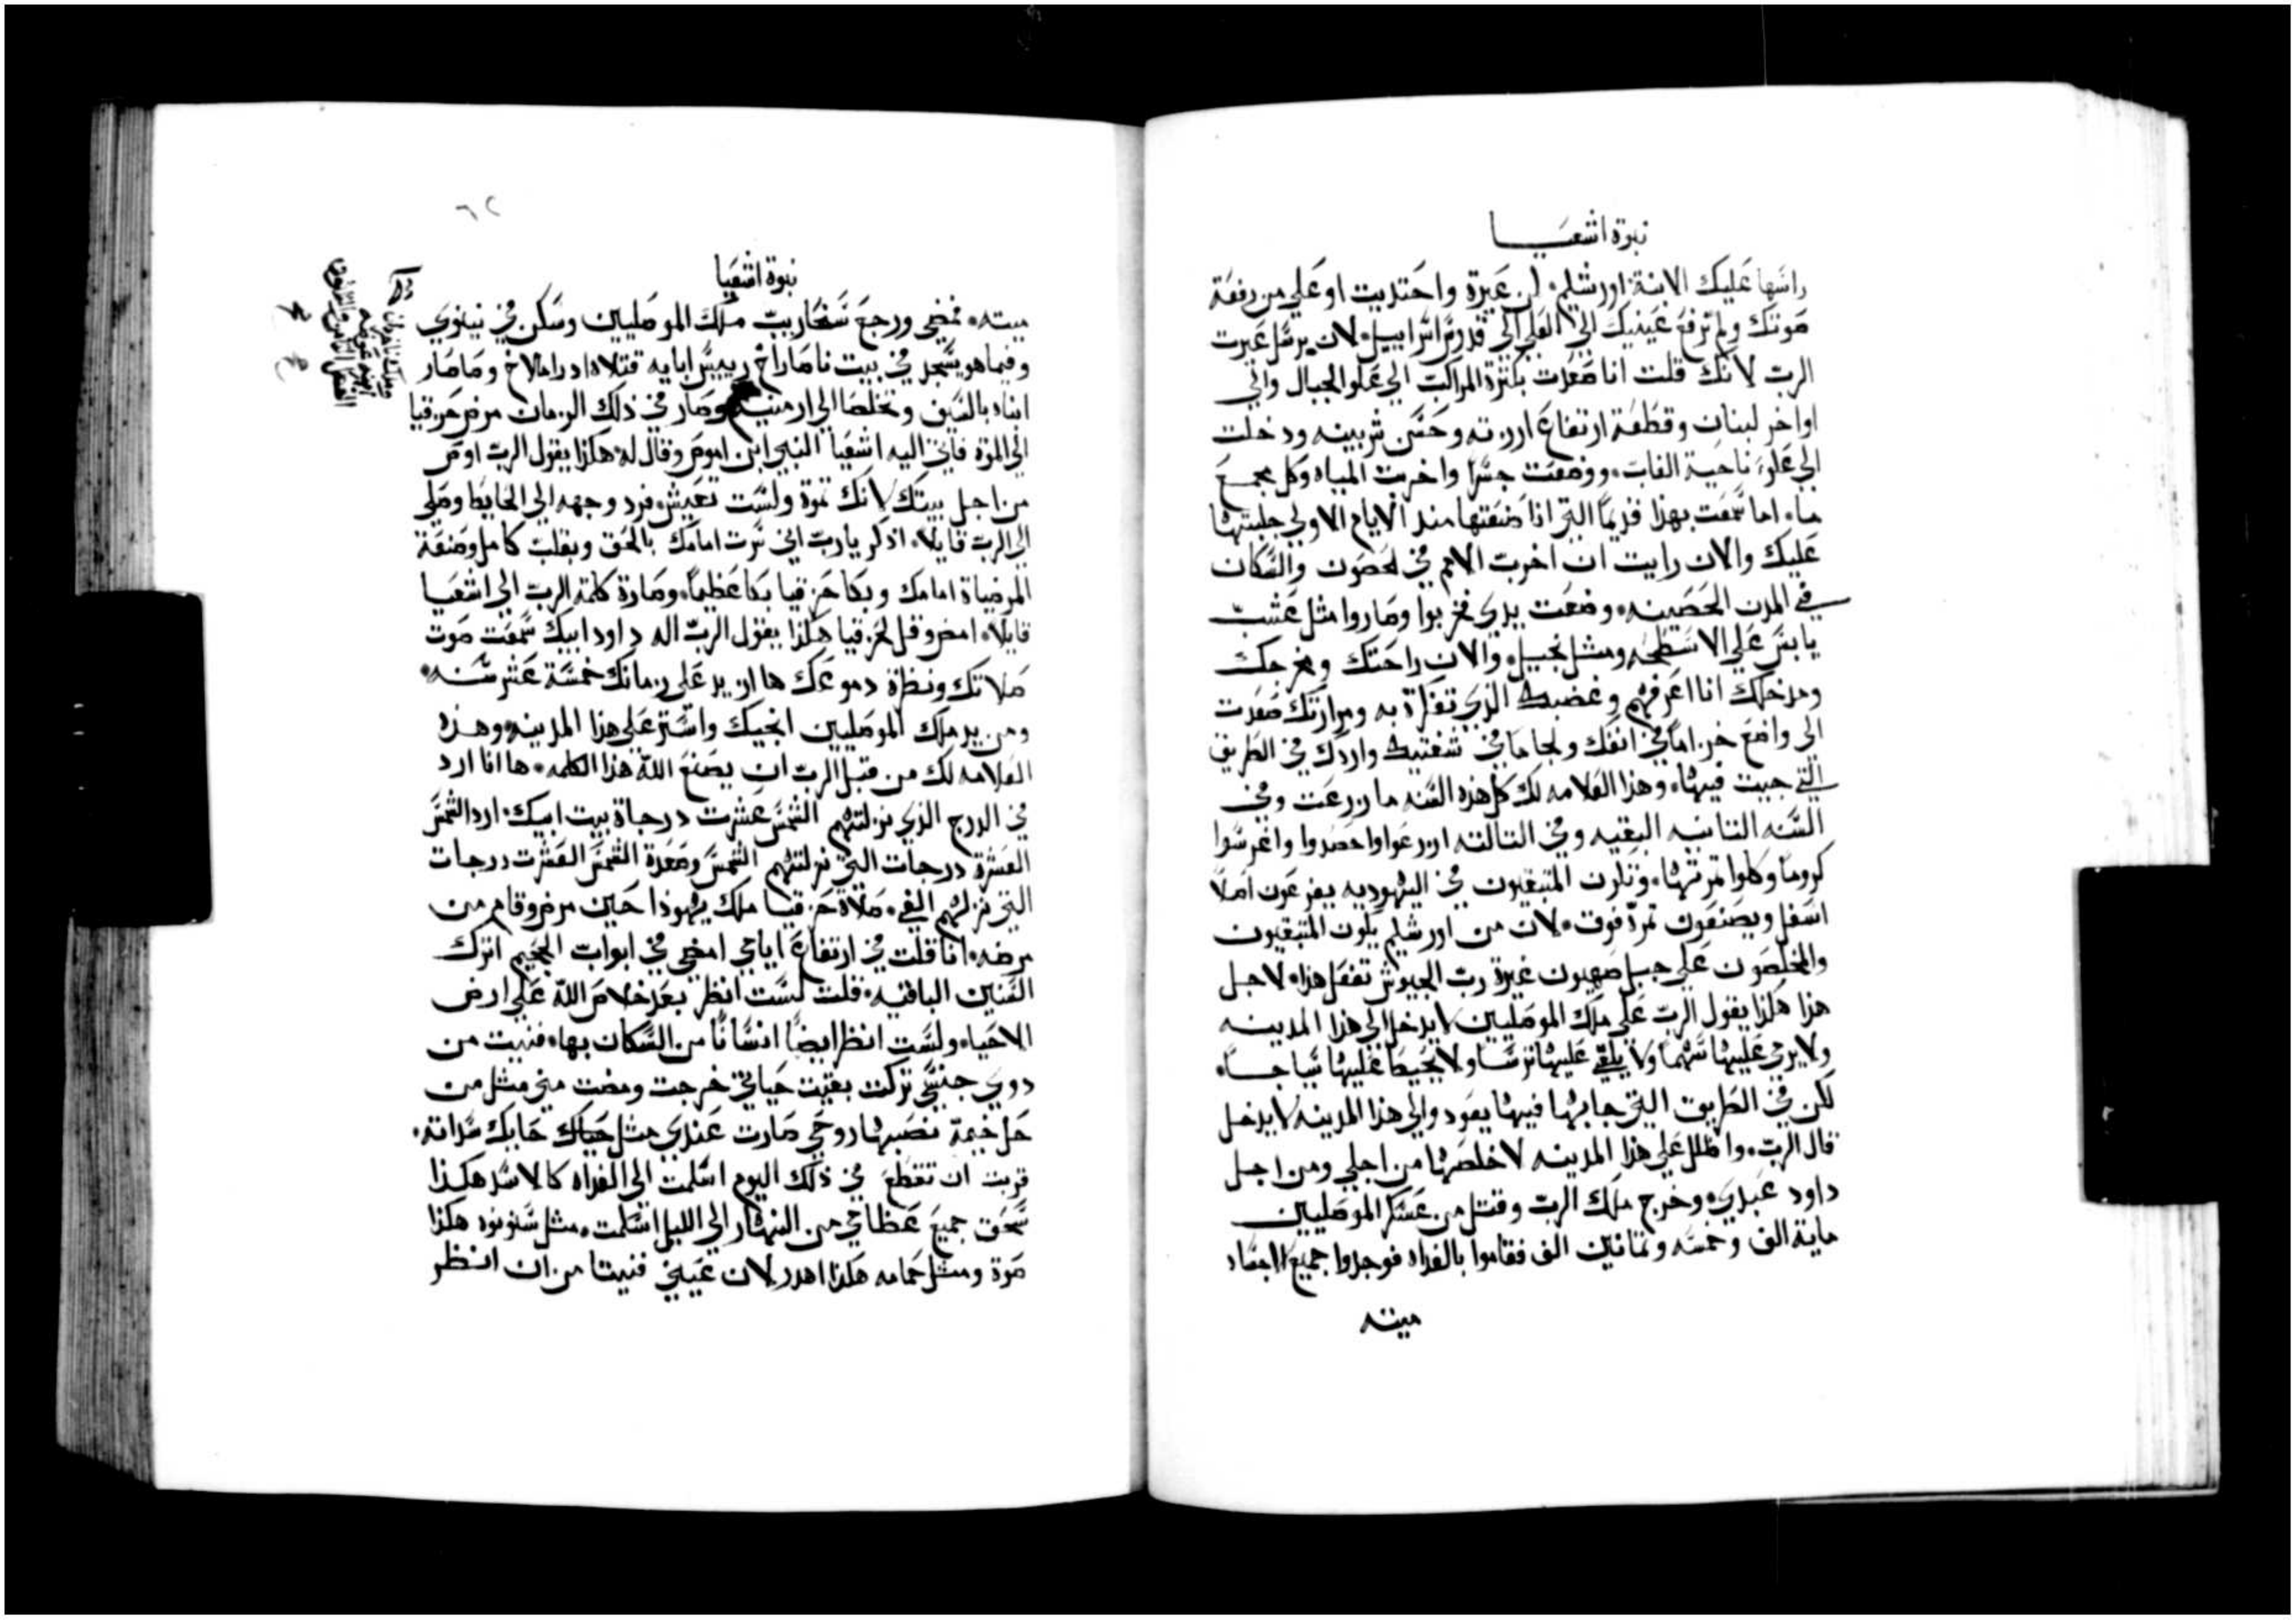 نبوة اشعيا
راسها عليك الابنة اورشليم لمن عيرة واحتديت او علي من رفعة
صوتك ولم ترفع عينيك الي العلي الي قدوس اسراييل لان برسل عيرت
الرب لانك قلت انا صعدت بكثرة المراكب الي علو الجبال والي
اواخر لبنان وقطعة ارتفاع ارزته وحسن شربينه ودخلت
الي علو ناحية الغاب ووضعت جسرا واخربت المياه وكل مجمع
ماء اما سمعت بهذا قديما التي انا صنعتها منذ الايام الاولي جلبتها
عليك والان رايت ان اخرب الامم في الحصون والسكان
في المدن الحصينه وضعت يدي فخربوا وصاروا مثل عشب
يابس علي الاسطحه ومثل نجيل والان راحتك ومخرجك
ومدخلك انا اعرفهم وغضبك الذي تفكرة به ومرارتك صعدت
الي واضع خزاما في انفك ولجاما في شفتيك واردك في الطريق
التي جيت فيها وهذا العلامه لك كل هذه السنه ما زرعت وفي
السنه الثانيه البقيه وفي الثالثه ازرعوا واحصدوا واغرسوا
كروما وكلوا ثمرتها وتكون المتبقيون في اليهوديه يفرعون اصلا
اسفل ويصنعون ثمرة فوق لان من اورشليم يكون المتبقيون
والمخلصون علي جبل صهيون غيرة رب الجيوش تفعل هذا لاجل
هذا هكذا يقول الرب علي ملك الموصليين لا يدخل الي هذا المدينه
ولا يرمي عليها سهما ولا يلقي عليها ترسا ولا يحيط عليها سياجا
لكن في الطريق التي جا بها فيها يعود والي هذا المدينه لا يدخل
قال الرب واظلل علي هذا المدينه لاخلصها من اجلي ومن اجل
داود عبدي وخرج ملاك الرب وقتل من عسكر الموصليين
ماية الف وخمسه وثمانين الف فقاموا بالغداه فوجدوا جميع الاجساد
ميته
٦٢
نبوة اشعيا
ميته فمضي ورجع سنحاريب ملك الموصليين وسكن في نينوي
وفيما هو يسجد في بيت ناصاراخ رييس ابايه قتلاه ادراملاخ وصاصار
ابناه بالسيف وتخلصا الي ارمنيه وصار في ذلك الزمان مرض حزقيا
الي الموة فاتي اليه اشعيا النبي ابن اموص وقال له هكذا يقول الرب اوص
من اجل بيتك لانك تموة ولست تعيش فرد وجهه الي الحايط وصلي
الي الرب قايلا اذكر يا رب اني سرت امامك بالحق وبقلب كامل وصنعة
المرضياة امامك وبكا حزقيا بكا عظيما وصارة كلمة الرب الي اشعيا
قايلا امض وقل لحزقيا هكذا يقول الرب اله داود ابيك سمعت صوت
صلاتك ونظرة دموعك ها ازيد علي زمانك خمسة عشر سنه
ومن يد ملك الموصليين انجيك واستر علي هذا المدينه وهذه
العلامه لك من قبل الرب ان يصنع الله هذا الكلمه ها انا ارد
في الدرج الذي نزلتهم الشمس عشرت درجاة بيت ابيك ارد الشمس
العشرة درجات التي نزلتهم الشمس وصعدة الشمس العشرت درجات
التي نزلهم الفي صلاة حزقيا ملك يهوذا حين مرض وقام من
مرضه انا قلت في ارتفاع ايامي امضي في ابواب الجحيم اترك
السنين الباقيه فلت لست انظر بعد خلاص الله علي ارض
الاحياء ولست انظر ايضا انسانا من السكان بها فنيت من
ذوي جنسي تركت بقيت حياتي خرجت ومضت مني مثل من
حل خيمة نصبها روحي صارت عندي مثل حياك حايك سداته
قربت ان تقطع في ذلك اليوم اسلمت الي الغداه كالاسد هكذا
سحق جميع عظامي من النهار الي الليل اسلمت مثل سنونوه هكذا
صوة ومثل حمامه هكذا اهدر لان عيني فنيتا من ان انظر